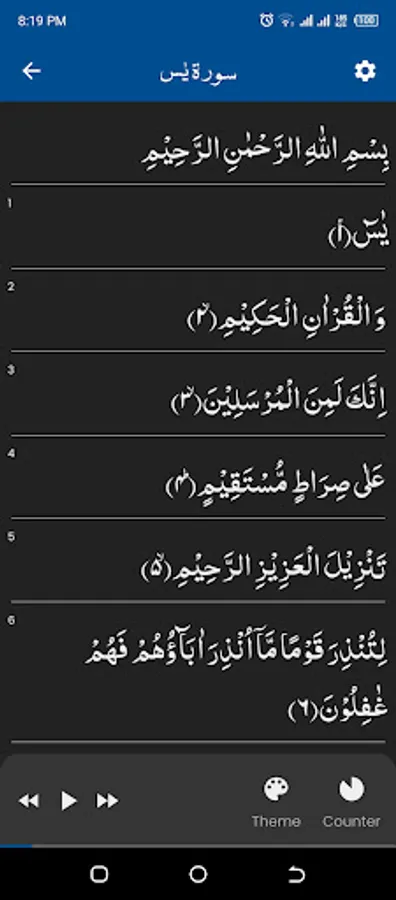 8:19 PM
سورة يٰس
بِسْمِ اللهِ الرَّحْمٰنِ الرَّحِيْمِ
1
يٰسٓ(۱)
2
وَ الْقُرْاٰنِ الْحَكِيْمِ(۲)
3
اِنَّكَ لَمِنَ الْمُرْسَلِيْنَ(۳)
4
عَلٰى صِرَاطٍ مُّسْتَقِيْمٍ(۴)
5
تَنْزِيْلَ الْعَزِيْزِ الرَّحِيْمِ(۵)
6
لِتُنْذِرَ قَوْمًا مَّاۤ اُنْذِرَ اٰبَآؤُهُمْ فَهُمْ
غٰفِلُوْنَ(۶)
Theme
Counter